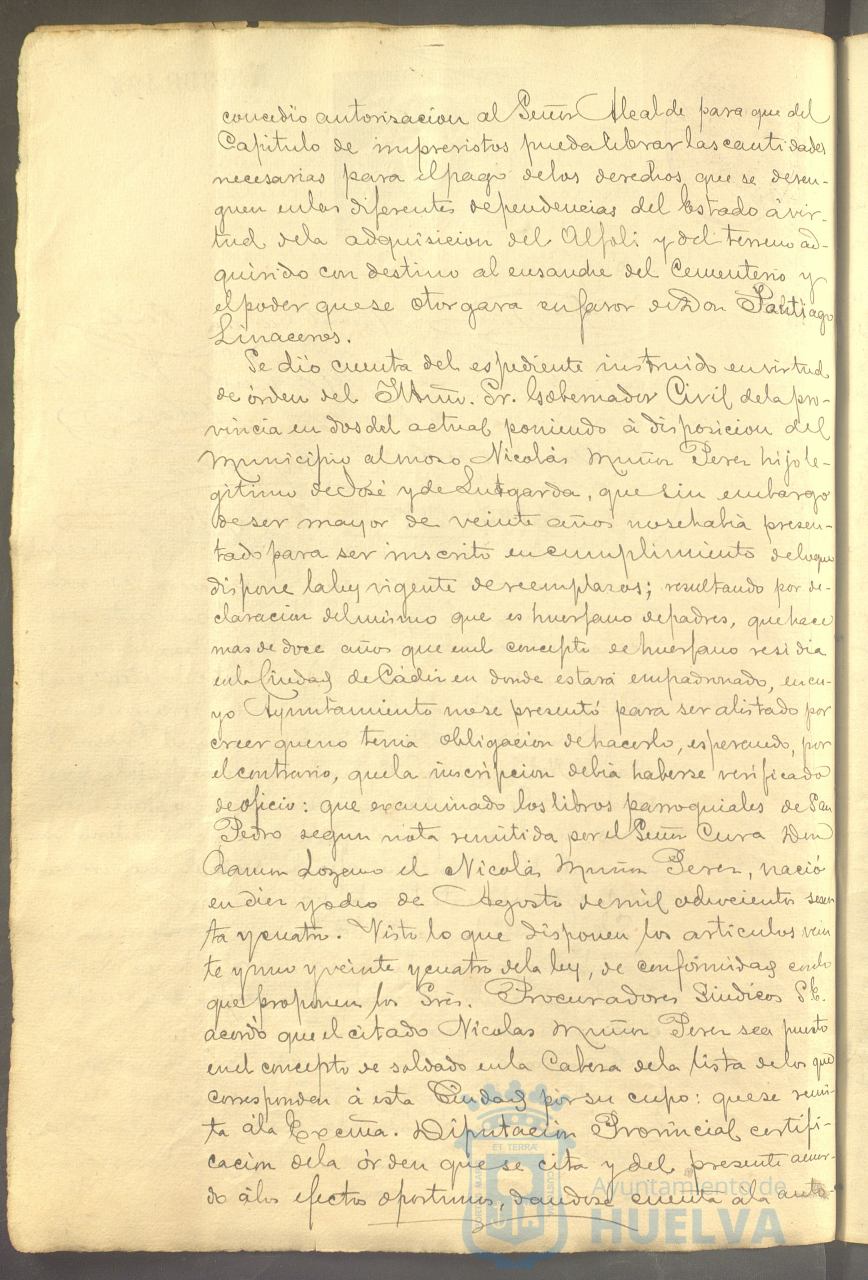 concedió autorisacion al Señor Alcalde para que del
Capitulo de imprevistos pueda librar las cantidades
necesarias para el pago de los derechos que se deven-
guen en las diferentes dependencias del Estado á vir-
tud de la adquisicion del Alfoli y del terreno ad-
quirido con destino al ensanche del Cementerio y
el poder que se otorgara en favor de Don Santiago
Linaceros.
Se dió cuenta del espediente instruido en virtud
de órden del Iltmo. Sr. Gobernador Civil de la pro-
vincia en dos del actual poniendo á disposicion del
Municipio al moso Nicolás Muñoz Perez hijo le-
gitimo de José y de Lutgarda, que sin embargo
de ser mayor de veinte años no se habia presen-
tado para ser inscrito en cumplimiento de lo que
dispone la ley vigente de reemplazos; resultando por de-
claracion del mismo que es huerfano de padres, que hace
mas de doce años que en el concepto de huerfano residia
en la Ciudad de Cádiz en donde estará empadronado, en cu-
yo Ayuntamiento no se presentó para ser alistado por
creer que no tenia obligacion de hacerlo, esperando, por
el contrario, que la inscripcion debia haberse verificado
de oficio: que examinado los libros parroquiales de San
Pedro segun nota remitida por el Señor Cura Don
Ramon Lozano el Nicolás Muñoz Perez, nació
en diez y ocho de Agosto de mil ochocientos sesen
ta y cuatro. Visto lo que disponen los articulos vein
te y uno y veinte y cuatro de la ley, de conformidad con lo
que proponen los Sres. Procuradores Sindicos Se.
acordó que el citado Nicolas Muñoz Perez sea puesto
en el concepto de soldado en la Cabeza de la lista de los que
corresponden á esta Ciudad por su cupo: que se remi-
ta á la Excma. Diputacion Provincial certifi-
cacion de la órden que se cita y del presente acuer-
do á los efectos oportunos, dandose cuenta á la auto-
ET TERRA
Ayuntamiento de
HUELVA